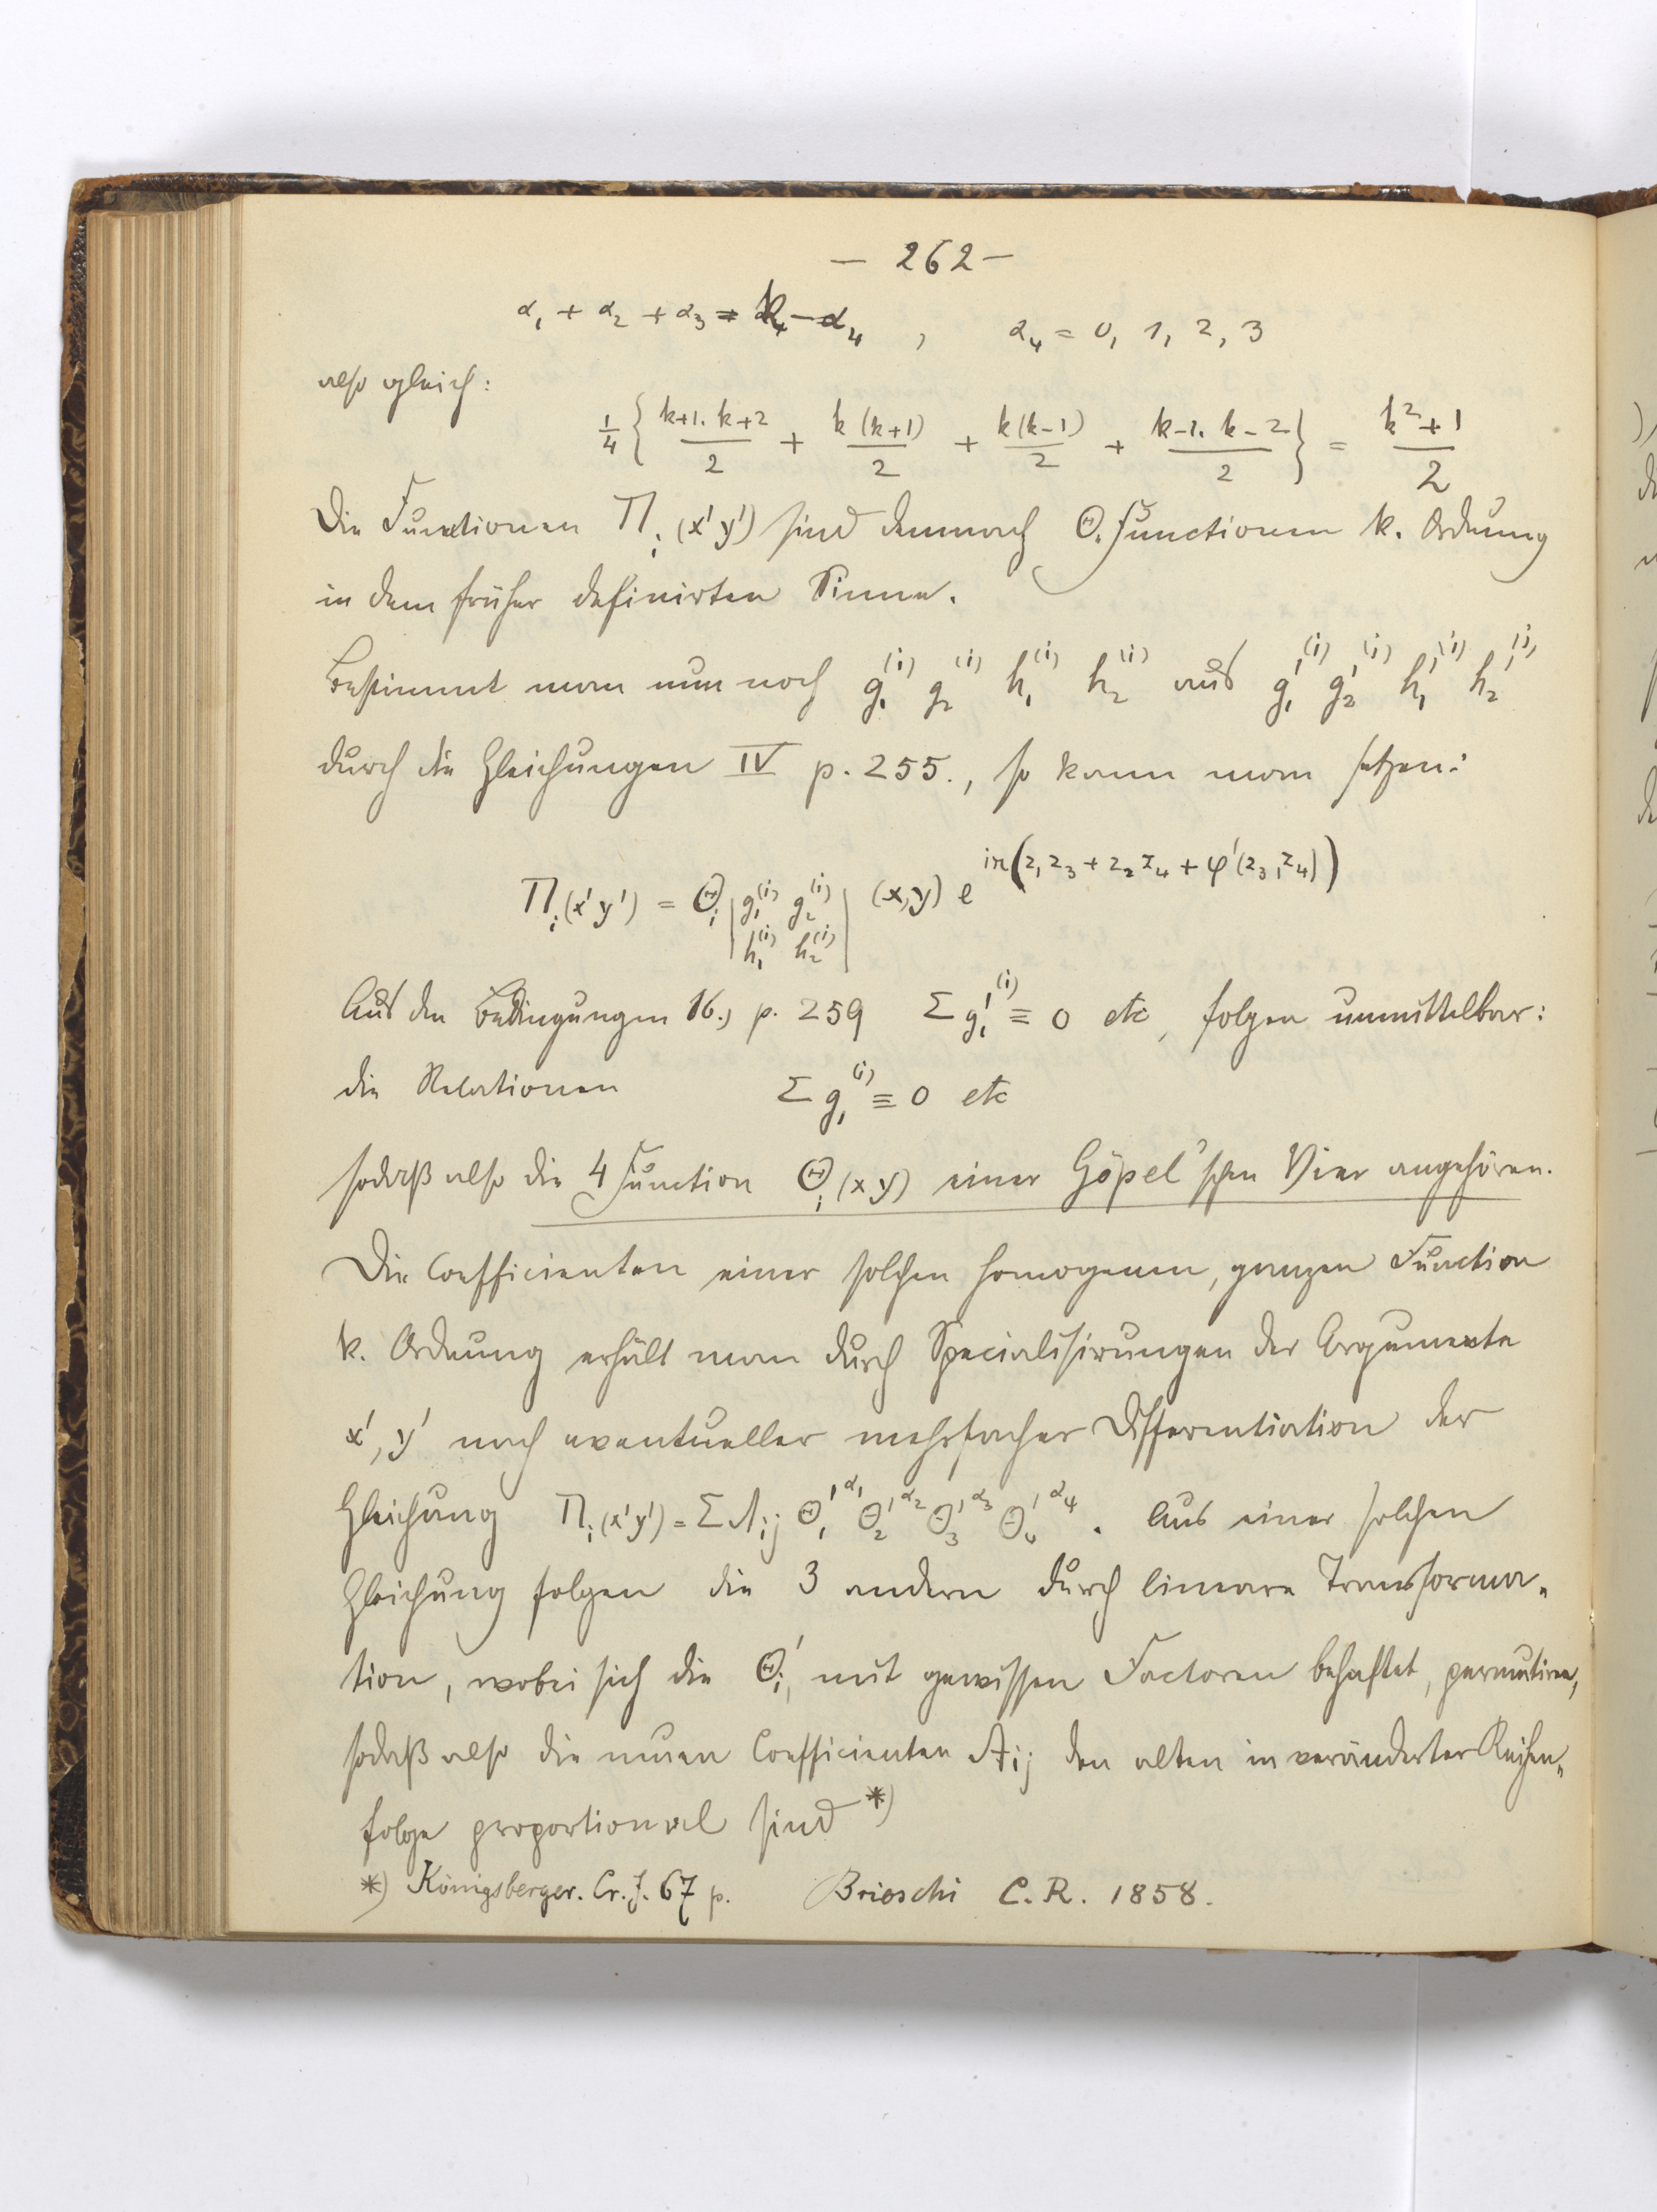 — 262 —
α₁ + α₂ + α₃ = k − α₄ , α₄ = 0, 1, 2, 3
also gleich:
1/4 { (k+1. k+2)/2 + k(k+1)/2 + k(k-1)/2 + (k-1. k-2)/2 } = (k²+1)/2
Die Functionen Π_i (x' y') sind demnach Θ. Functionen k. Ordnung
in dem früher definirten Sinne.
Bestimmt man nun noch g₁⁽ⁱ⁾ g₂⁽ⁱ⁾ h₁⁽ⁱ⁾ h₂⁽ⁱ⁾ aus g₁'⁽ⁱ⁾ g₂'⁽ⁱ⁾ h₁'⁽ⁱ⁾ h₂'⁽ⁱ⁾
durch die Gleichungen IV p. 255., so kann man setzen:
Π_i (x' y') = Θ_i |g₁⁽ⁱ⁾ g₂⁽ⁱ⁾ h₁⁽ⁱ⁾ h₂⁽ⁱ⁾| (x,y) e^{iπ(z₁z₃ + z₂z₄ + φ'(z₃,z₄))}
Aus den Bedingungen 16.) p. 259 Σ g₁'⁽ⁱ⁾ ≡ 0 etc, folgen unmittelbar:
die Relationen Σ g₁⁽ⁱ⁾ ≡ 0 etc
sodaß also die 4 Function Θ_i (x y) einer Göpel'schen Vier angehören.
Die Coefficienten einer solchen homogenen, ganzen Function
k. Ordnung erhält man durch Specialisirungen der Argumente
x', y' nach eventueller mehrfacher Differentiation der
Gleichung Π_i (x'y') = Σ A_ij Θ₁'^α₁ Θ₂'^α₂ Θ₃'^α₃ Θ₄'^α₄ . Aus einer solchen
Gleichung folgen die 3 andern durch lineare Transforma-
tion, wobei sich die Θ_i', mit gewissen Factoren behaftet, permutiren,
sodaß also die neuen Coefficienten A_ij den alten in veränderter Reihen-
folge proportional sind *)
*) Königsberger. Cr. J. 67 p. Brioschi C. R. 1858.